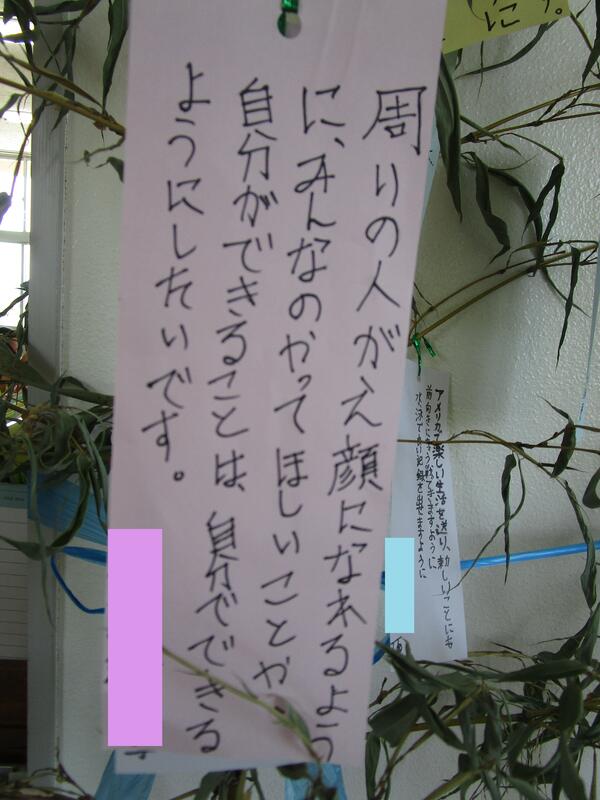 周りの人がえ顔になれるよう
に、みんなのやってほしいことや、
自分ができることは、自分でできる
ようにしたいです。
アメリカで楽しい生活を送り、新しいことにも
前向きに できますように
水泳で 記録を出せますように
に
す。